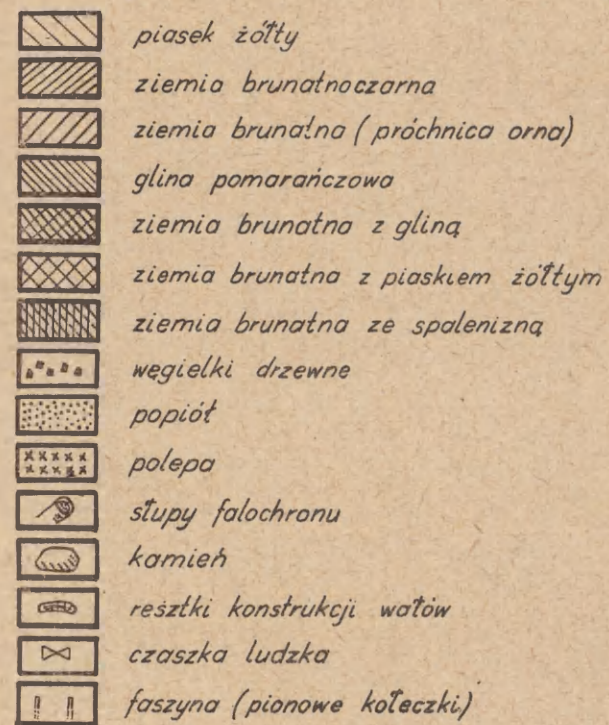 piasek żółty
ziemia brunatnoczarna
ziemia brunatna (próchnica orna)
glina pomarańczowa
ziemia brunatna z gliną
ziemia brunatna z piaskiem żółtym
ziemia brunatna ze spalenizną
węgielki drzewne
popiół
polepa
słupy falochronu
kamień
resztki konstrukcji wałów
czaszka ludzka
faszyna (pionowe kołeczki)